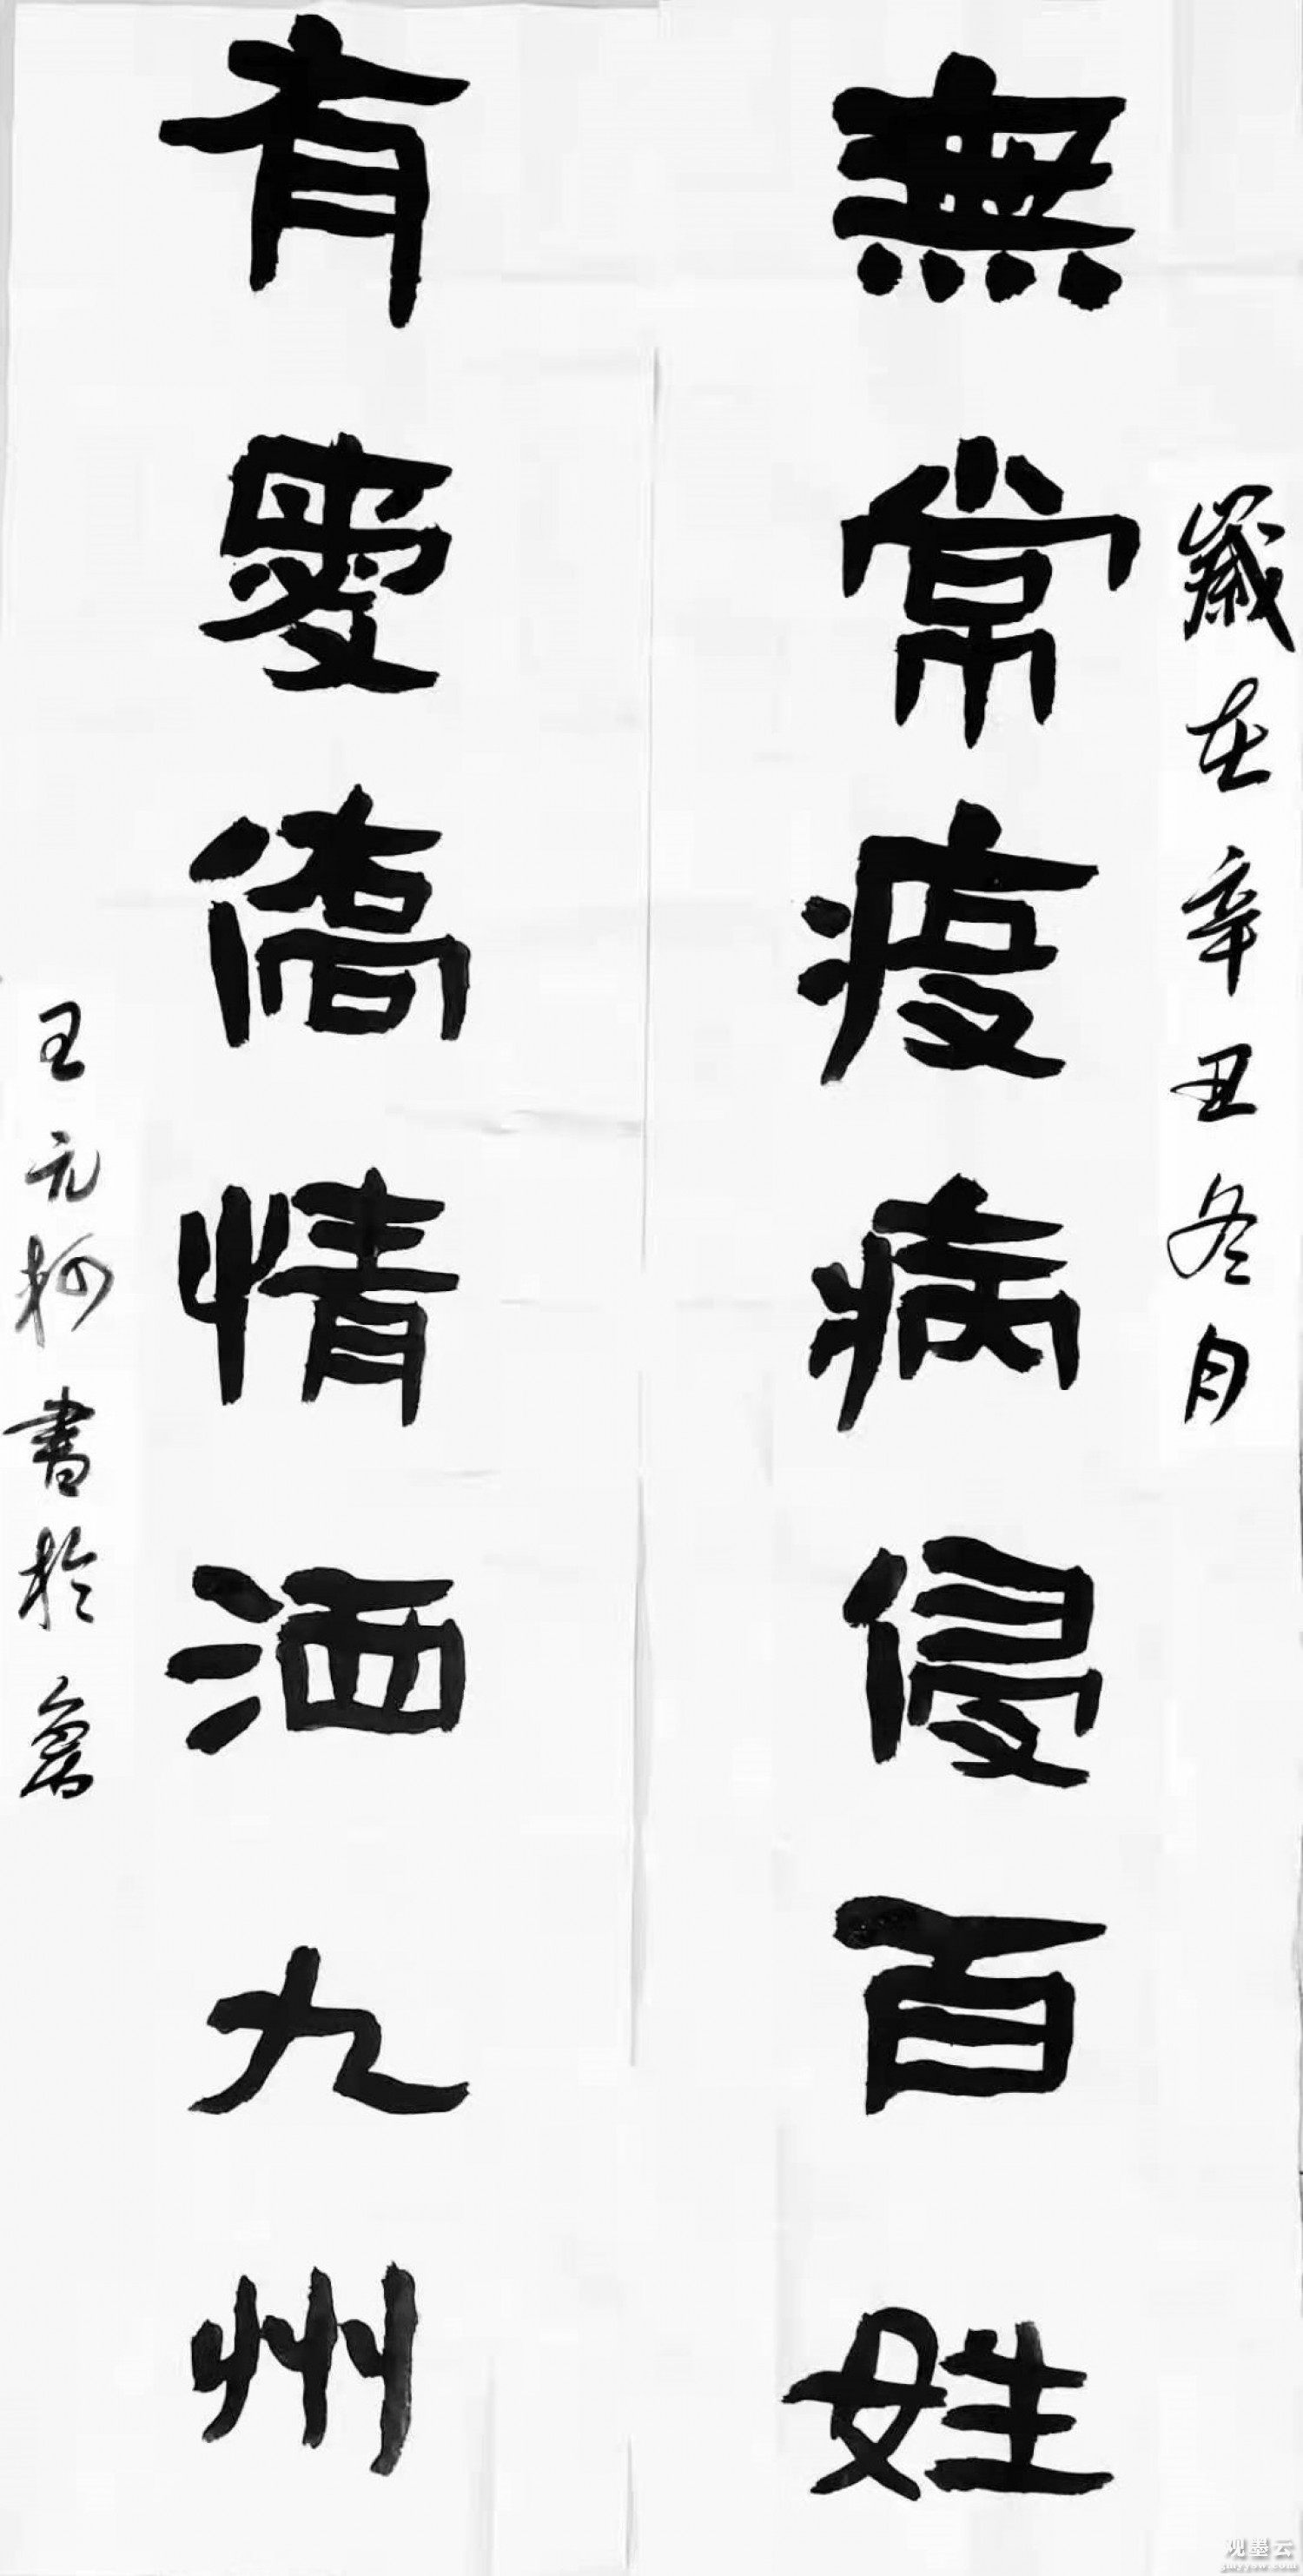 歲在辛丑冬月
無常疫病侵百姓
有愛僑情洒九州
王元柯書於
观墨云